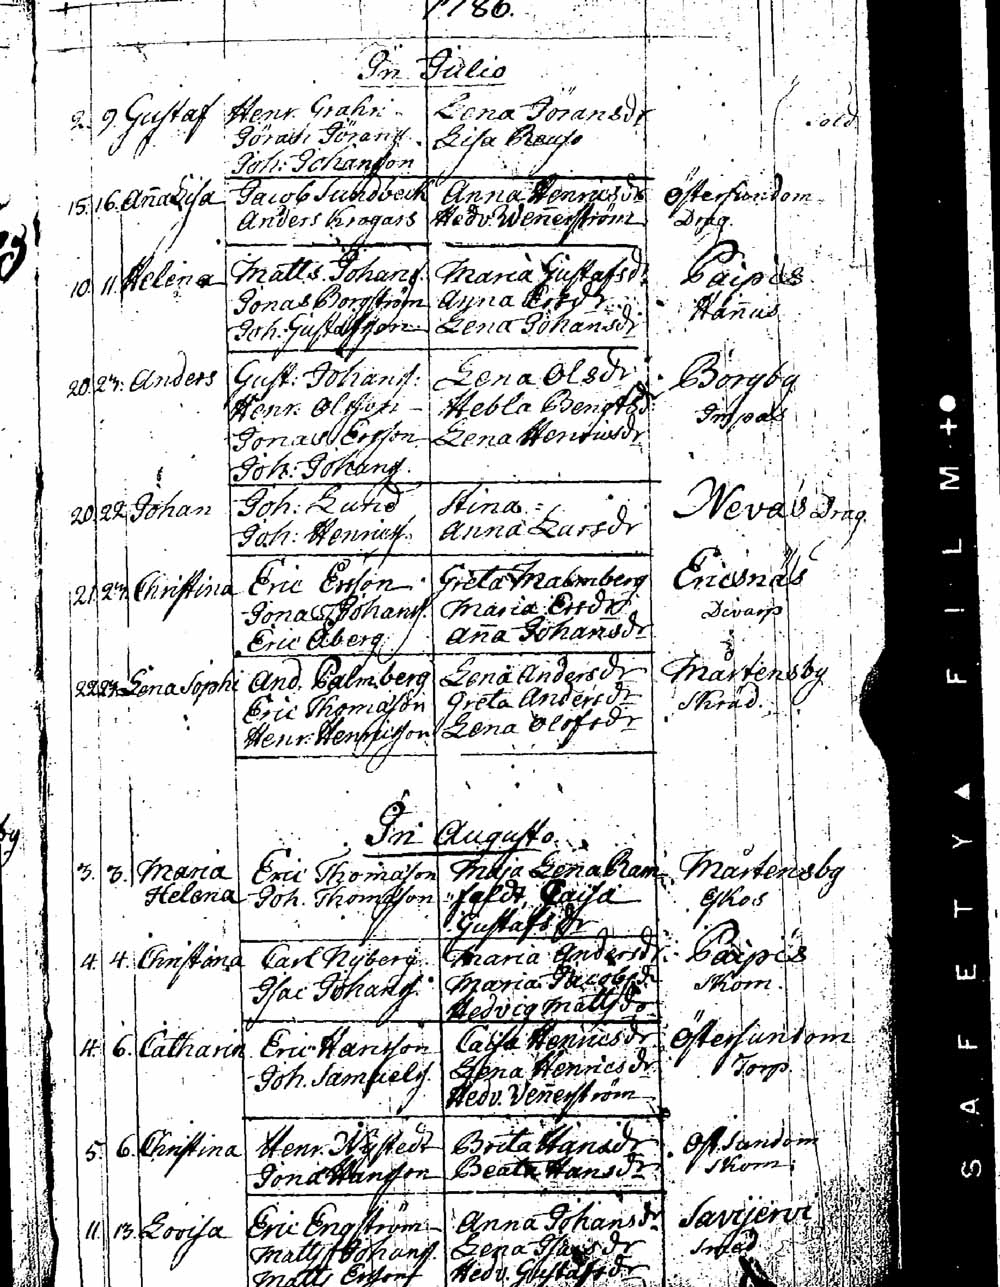 1786.
In Julio
2. 9. Gustaf Henr. Grahn Lena Göransdr
Göran Görans. Lisa
Joh: Johansson
15. 16. Aña Lisa Jacob Sundbeck Anna Henricsdr Östersundom
Anders Krogars Hedv. Weñerström Drag.
10. 11. Helena Matts Johans. Maria Gustafsdr Paipis
Jonas Borgström Anna Ersdr Hañus
Joh. Gustafsson Lena Johañsdr
20. 23. Anders Gust: Johans: Lena Olsdr Borgby
Henr. Olsson Hebla Bengtsdr
Jonas Ersson Lena Henricsdr
Joh: Johans.
20. 22. Johan Joh: Lund Stina
Joh: Henrics. Anna Larsdr Nevas Drag.
21. 23. Christina Eric Ersson Greta Malmberg Ericsnäs
Jonas Johans. Maria Ersdr
Eric Åberg Aña Johañsdr
22. 23. Lena Sophi And. Palmberg Lena Andersdr Mårtensby
Eric Thomasson Greta Andersdr Skräd.
Henr. Henricsson Lena Olofsdr
In Augusto.
3. 3. Maria Eric Thomasson Maja Lena Ram Mårtensby
Helena Joh. Thomasson feldt, Caisa
Gustafsdr
4. 4. Christina Carl Nyberg Maria Andersdr Paipis
Isac Johans. Maria Jacobsdr Skom.
Hedvig Mattsdr
4. 6. Catharin Eric Hansson Caisa Henricsdr Östersundom
Joh. Samuels. Lena Henricsdr Torp.
Hedv. Veñerström
5. 6. Christina Henr. Nystedt Brita Hansdr Östsundom
Jona Hansson Beata Hansdr Skom.
11. 13. Lovisa Eric Engström Anna Johansdr Savijervi
Matts Johans. Lena Isacsdr Smed
Matts Ersson Hedv. Gustafsdr
SAFETY FILM